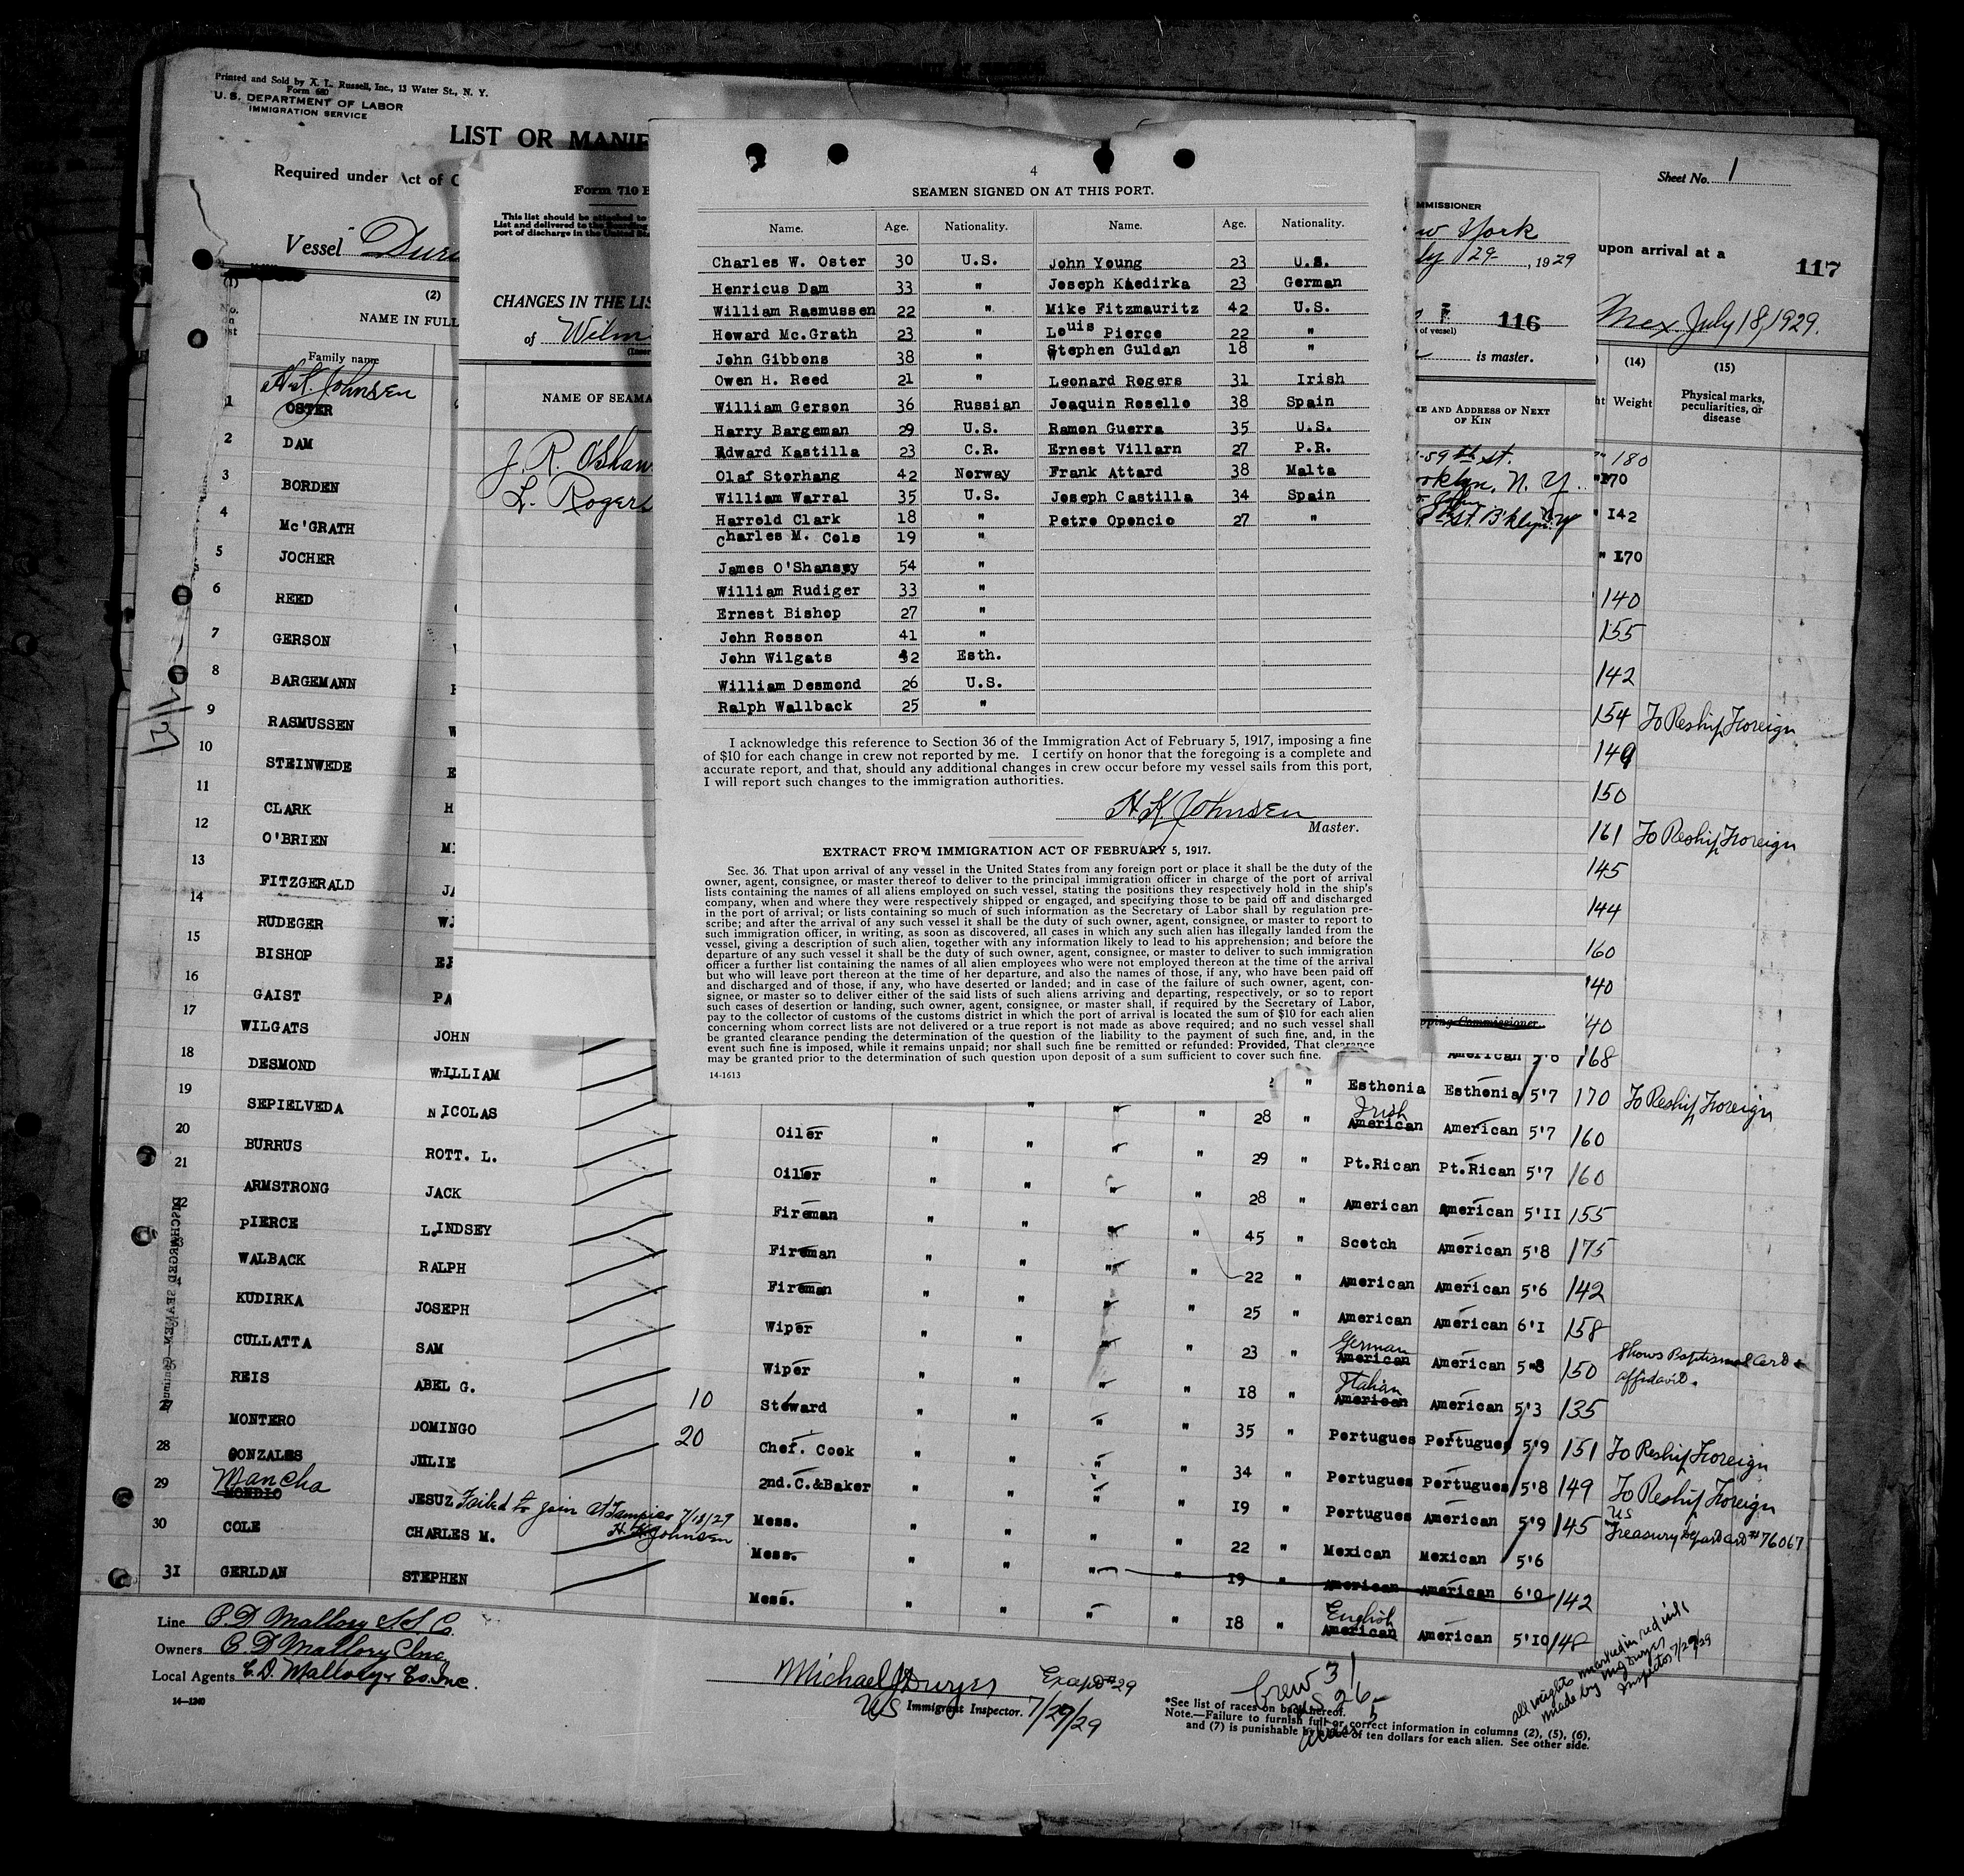 Printed and Sold by A. L. Russell, Inc., 13 Water St., N. Y.
Form 680
U. S. DEPARTMENT OF LABOR
IMMIGRATION SERVICE
LIST OR MANIF
Required under Act of C
Vessel
Sheet No. 1
upon arrival at a
117
Mex. July 18, 1929.
(1)
(2)
NAME IN FULL
Family name
(14)
(15)
Weight
Physical marks, peculiarities, or disease
Form 710 B
This list should be attached to
List and delivered to the Boarding
port of discharge in the United Sta
CHANGES IN THE LIS
of Wilmi
NAME OF SEAMA
J. R. O'Shan
L. Rogers
MMISSIONER
w York
ly 29, 1929
116
of vessel)
is master.
ME AND ADDRESS OF NEXT
OF KIN
59th St.
oklyn, N. Y.
St. B'klyn NY
pping Commissioner
4
SEAMEN SIGNED ON AT THIS PORT.
Name. Age. Nationality. Name. Age. Nationality.
Charles W. Oster 30 U.S. John Young 23 U.S.
Henricus Dam 33 " Joseph Kaedirka 23 German
William Rasmussen 22 " Mike Fitzmauritz 42 U.S.
Howard Mc.Grath 23 " Louis Pierce 22 "
John Gibbons 38 " Stephen Guldan 18 "
Owen H. Reed 21 " Leonard Rogers 31 Irish
William Gerson 36 Russian Joaquin Rosello 38 Spain
Harry Bargeman 29 U.S. Ramon Guerra 35 U.S.
Edward Kastilla 23 C.R. Ernest Villarn 27 P.R.
Olaf Storhang 42 Norway Frank Attard 38 Malta
William Warral 35 U.S. Joseph Castilla 34 Spain
Harrold Clark 18 " Petro Opencio 27 "
Charles M. Cole 19 "
James O'Shansey 54 "
William Rudiger 33 "
Ernest Bishop 27 "
John Rosson 41 "
John Wilgats 32 Esth.
William Desmond 26 U.S.
Ralph Wallback 25 "
I acknowledge this reference to Section 36 of the Immigration Act of February 5, 1917, imposing a fine
of $10 for each change in crew not reported by me. I certify on honor that the foregoing is a complete and
accurate report, and that, should any additional changes in crew occur before my vessel sails from this port,
I will report such changes to the immigration authorities.
H. K. Johnsen
Master.
EXTRACT FROM IMMIGRATION ACT OF FEBRUARY 5, 1917.
Sec. 36. That upon arrival of any vessel in the United States from any foreign port or place it shall be the duty of the
owner, agent, consignee, or master thereof to deliver to the principal immigration officer in charge of the port of arrival
lists containing the names of all aliens employed on such vessel, stating the positions they respectively hold in the ship's
company, when and where they were respectively shipped or engaged, and specifying those to be paid off and discharged
in the port of arrival; or lists containing so much of such information as the Secretary of Labor shall by regulation pre-
scribe; and after the arrival of any such vessel it shall be the duty of such owner, agent, consignee, or master to report to
such immigration officer, in writing, as soon as discovered, all cases in which any such alien has illegally landed from the
vessel, giving a description of such alien, together with any information likely to lead to his apprehension; and before the
departure of any such vessel it shall be the duty of such owner, agent, consignee, or master to deliver to such immigration
officer a further list containing the names of all alien employees who were not employed thereon at the time of the arrival
but who will leave port thereon at the time of her departure, and also the names of those, if any, who have been paid off
and discharged and of those, if any, who have deserted or landed; and in case of the failure of such owner, agent, con-
signee, or master so to deliver either of the said lists of such aliens arriving and departing, respectively, or so to report
such cases of desertion or landing, such owner, agent, consignee, or master shall, if required by the Secretary of Labor,
pay to the collector of customs of the customs district in which the port of arrival is located the sum of $10 for each alien
concerning whom correct lists are not delivered or a true report is not made as above required; and no such vessel shall
be granted clearance pending the determination of the question of the liability to the payment of such fine, and, in the
event such fine is imposed, while it remains unpaid; nor shall such fine be remitted or refunded: Provided, That clearance
may be granted prior to the determination of such question upon deposit of a sum sufficient to cover such fine.
14-1613
H. K. Johnsen
1 OSTER 180
2 DAM 170
3 BORDEN 142
4 Mc'GRATH 170
5 JOCHER 140
6 REED 155
7 GERSON 142
8 BARGEMANN 154 To Reship Foreign
9 RASMUSSEN 149
10 STEINWEDE 150
11 CLARK 161 To Reship Foreign
12 O'BRIEN 145
13 FITZGERALD 144
14 RUDEGER 160
15 BISHOP 140
16 GAIST PA 140
17 WILGATS JOHN American 168
18 DESMOND WILLIAM Esthonia Esthonia 5'7 170 To Reship Foreign
19 SEPIELVEDA NICOLAS Oiler 28 " Irish American American 5'7 160
20 BURRUS ROTT. L. Oiler 29 " Pt.Rican Pt.Rican 5'7 160
21 ARMSTRONG JACK Fireman 28 " American American 5'11 155
PIERCE LINDSEY Fireman 45 " Scotch American 5'8 175
WALBACK RALPH Fireman 22 " American American 5'6 142
KUDIRKA JOSEPH Wiper 25 " American American 6'1 158
CULLATTA SAM Wiper 23 " German American American 5'8 150 Shows Baptismal Card & affidavit.
REIS ABEL G. 10 Steward 18 " Italian American American 5'3 135
27 MONTERO DOMINGO 20 Chef. Cook 35 " Portugues Portugues 5'9 151 To Reship Foreign
28 GONZALES JULIE 2nd.C.&Baker 34 " Portugues Portugues 5'8 149 To Reship Foreign
29 Mancha MONDIO JESUZ Failed to join at Tampico 7/18/29 H. K. Johnsen Mess. 19 " Portugues American 5'9 145 US Treasury Dept Card #76067
30 COLE CHARLES M. Mess. 22 " Mexican Mexican 5'6
19 " American American 6'0 142
31 GERLDAN STEPHEN Mess. 18 " English American American 5'10 148
DISCHARGED SEAMEN—Continued
Line C. D. Mallory S.S. Co.
Owners C. D. Mallory & Inc
Local Agents C. D. Mallory & Co. Inc.
14-1240
Michael J Dwyer
US Immigrant Inspector. 7/29/29
Crew 31
US 26
5
*See list of races on back hereof.
Note.—Failure to furnish full or correct information in columns (2), (5), (6),
and (7) is punishable by a fine of ten dollars for each alien. See other side.
all weights marked in red ink
made by
Inspector 7/29/29